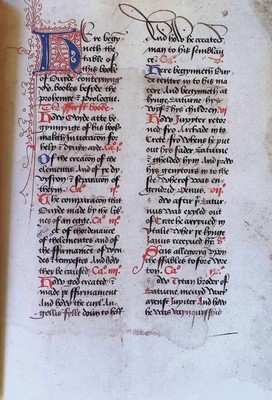 Here begyn
neth the
table of
this book
of Ovyde conteynyng
xv. bookes beside the
prohemye & prologue.
The first booke
How Ovyde atte be
gynnyng of his book
maketh Invocacion for
help & dyvyn ayde. Cao. i.
Of the creacion of the
elementis. And of þe dy
vysion & separacion of
theym. Cao. ii.
The comparacion that
Ovyde made by the lyk
nes of an egge. Cao. iii.
of thordenance
of thelementis and of
the firmament of wyn
des tempestes And how
they be caused. Cao. iiii.
How god created &
made þe firmament
And how the euyl An
gellis fylle doun to hell
And how he created
man to his semblan
ce. Cao.
Here begynneth Ouy
de tentre in to his ma
tere. And begynneth at
kynge Saturne hys
wyf & his children vi
How Jupyter retor
ned fro Archade in to
Crete fro whens he put
out his fader Saturne
& ghelded hym And
hys genytours in to the
see wherof was en
gendred Venus. vii
How after Satur
nus was exyled out
of Crete he arryved in
ytalie wher þe kynge
Janus receyved hym 8
Sens allegory vpon
the ffables to fore wre
ton. Cao.
How Tytan broder of
Saturne meuyd
ayenst Jupiter And how
he was vaynquysshid